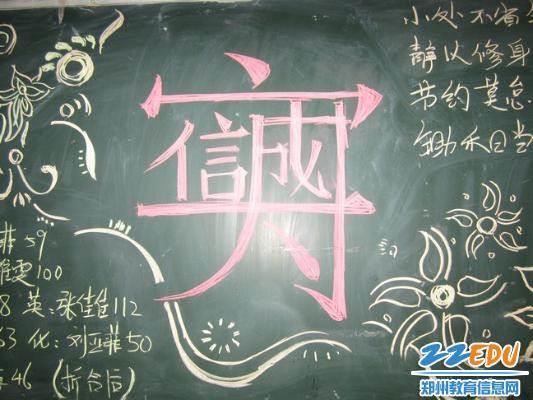 小处不省
静以修身
节约莫
锄禾日当
信成
菲59
雯100
8 英:张佳佳112
63 化:刘亚菲50
46 (折合后)
ZZEDU
郑州教育信息网